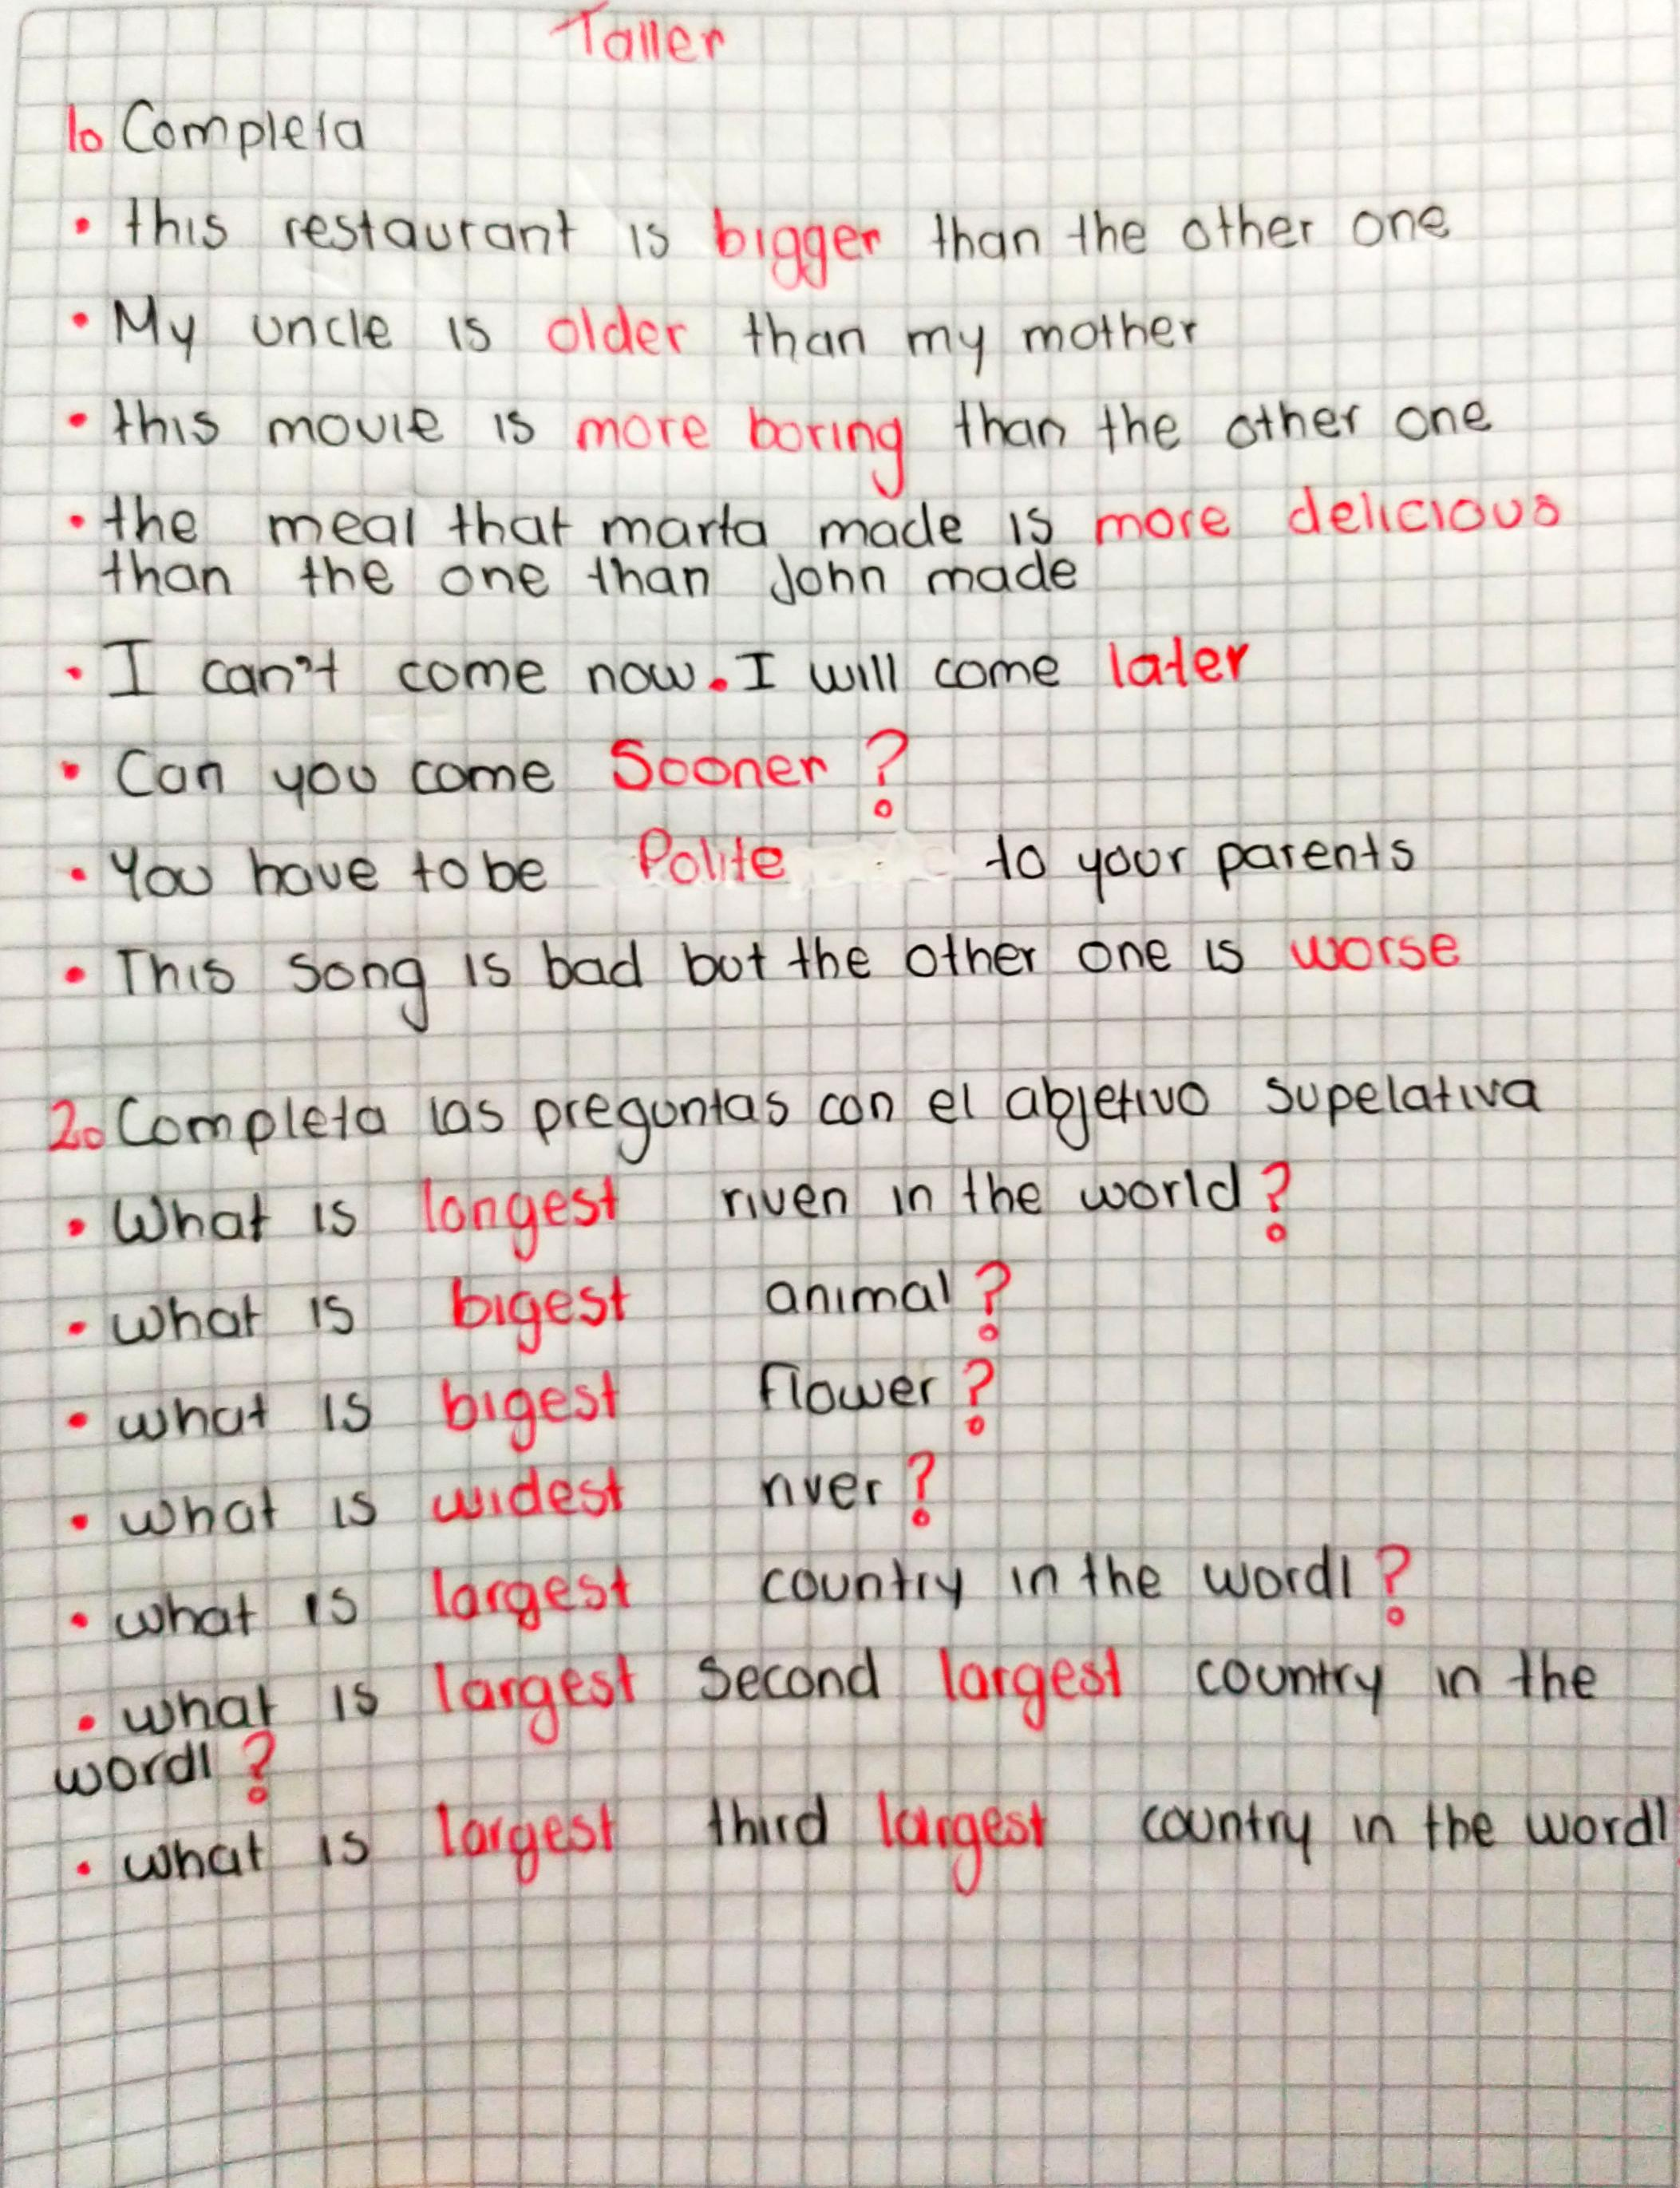 Taller
1. Completa
• this restaurant is bigger than the other one
• My uncle is older than my mother
• this movie is more boring than the other one
• the meal that marta made is more delicious
than the one than John made
• I can't come now. I will come later
• Can you come Sooner ?
• You have to be Polite to your parents
• This song is bad but the other one is worse
2. Completa las preguntas con el abjetivo supelativa
• What is longest riven in the world ?
• what is bigest animal ?
• what is bigest flower ?
• what is widest river ?
• what is largest country in the wordl ?
• what is largest second largest country in the
wordl ?
• what is largest third largest country in the wordl